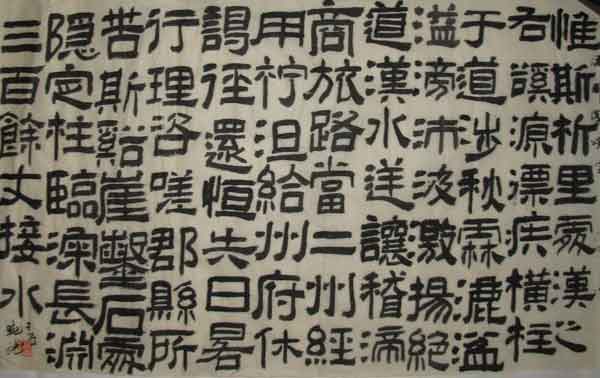 惟斯析里處漢之
右谿源漂疾橫柱
于道涉秋霖漉盆
溢滂沛波激揚絕
道漢水逆讓稽滯
商旅路當二州經
用衿沮給州府休
謁徑還恒失日晷
行理咨嗟郡縣所
苦斯谿崖鑿石處
隱定柱臨深長淵
三百餘丈接水